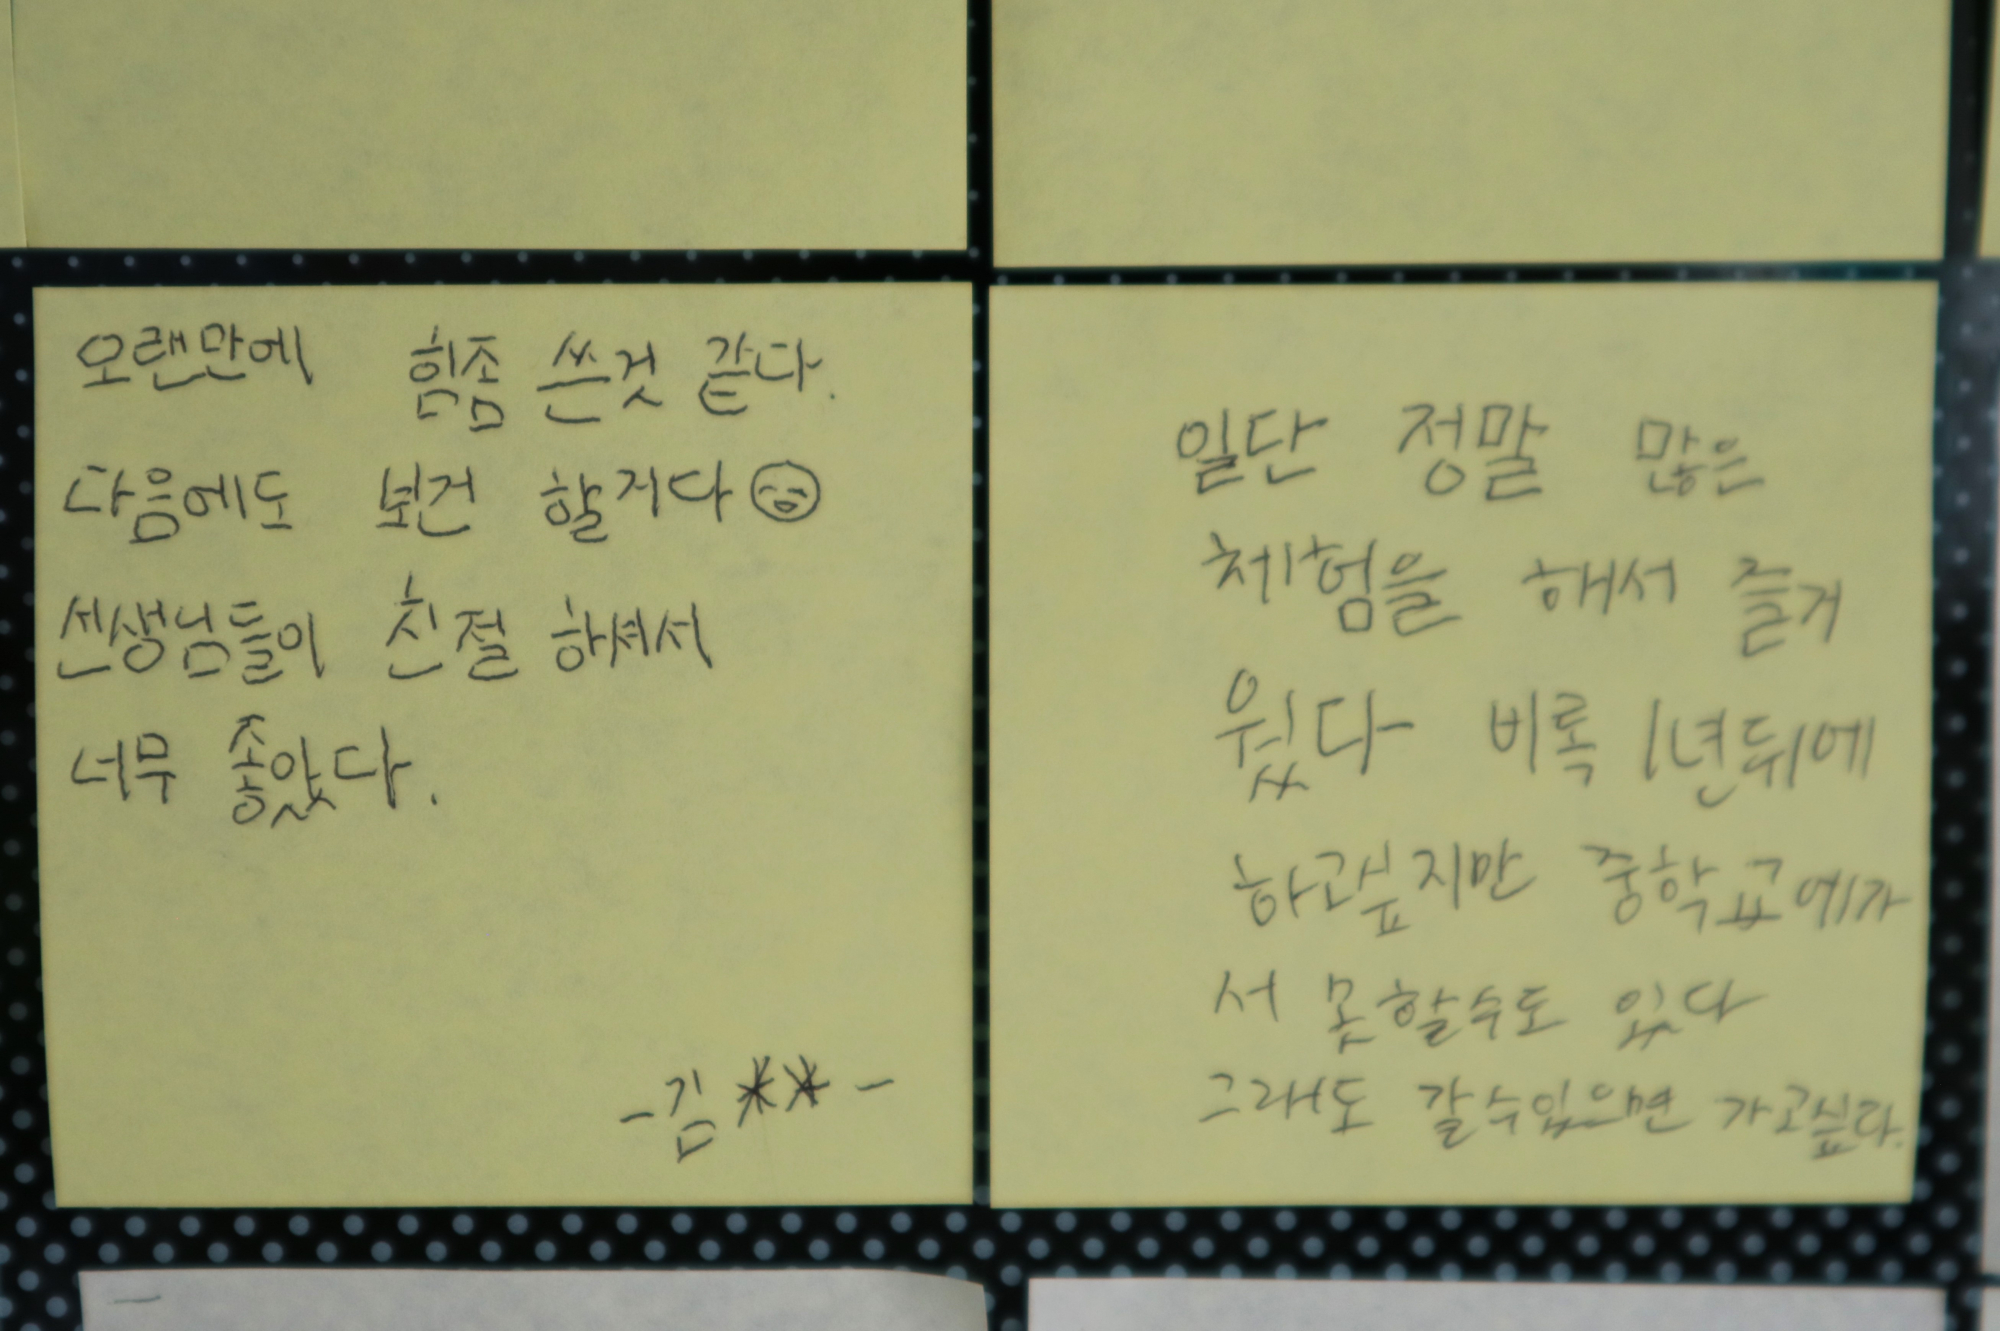 오랜만에 힘좀 쓴것 같다.
다음에도 보건 할거다
선생님들이 친절 하셔서
너무 좋았다.
-김 ** -
일단 정말 많은
체험을 해서 즐거
웠다 비록 1년뒤에
하고싶지만 중학교에가
서 못할수도 있다
그래도 갈수있으면 가고싶다.